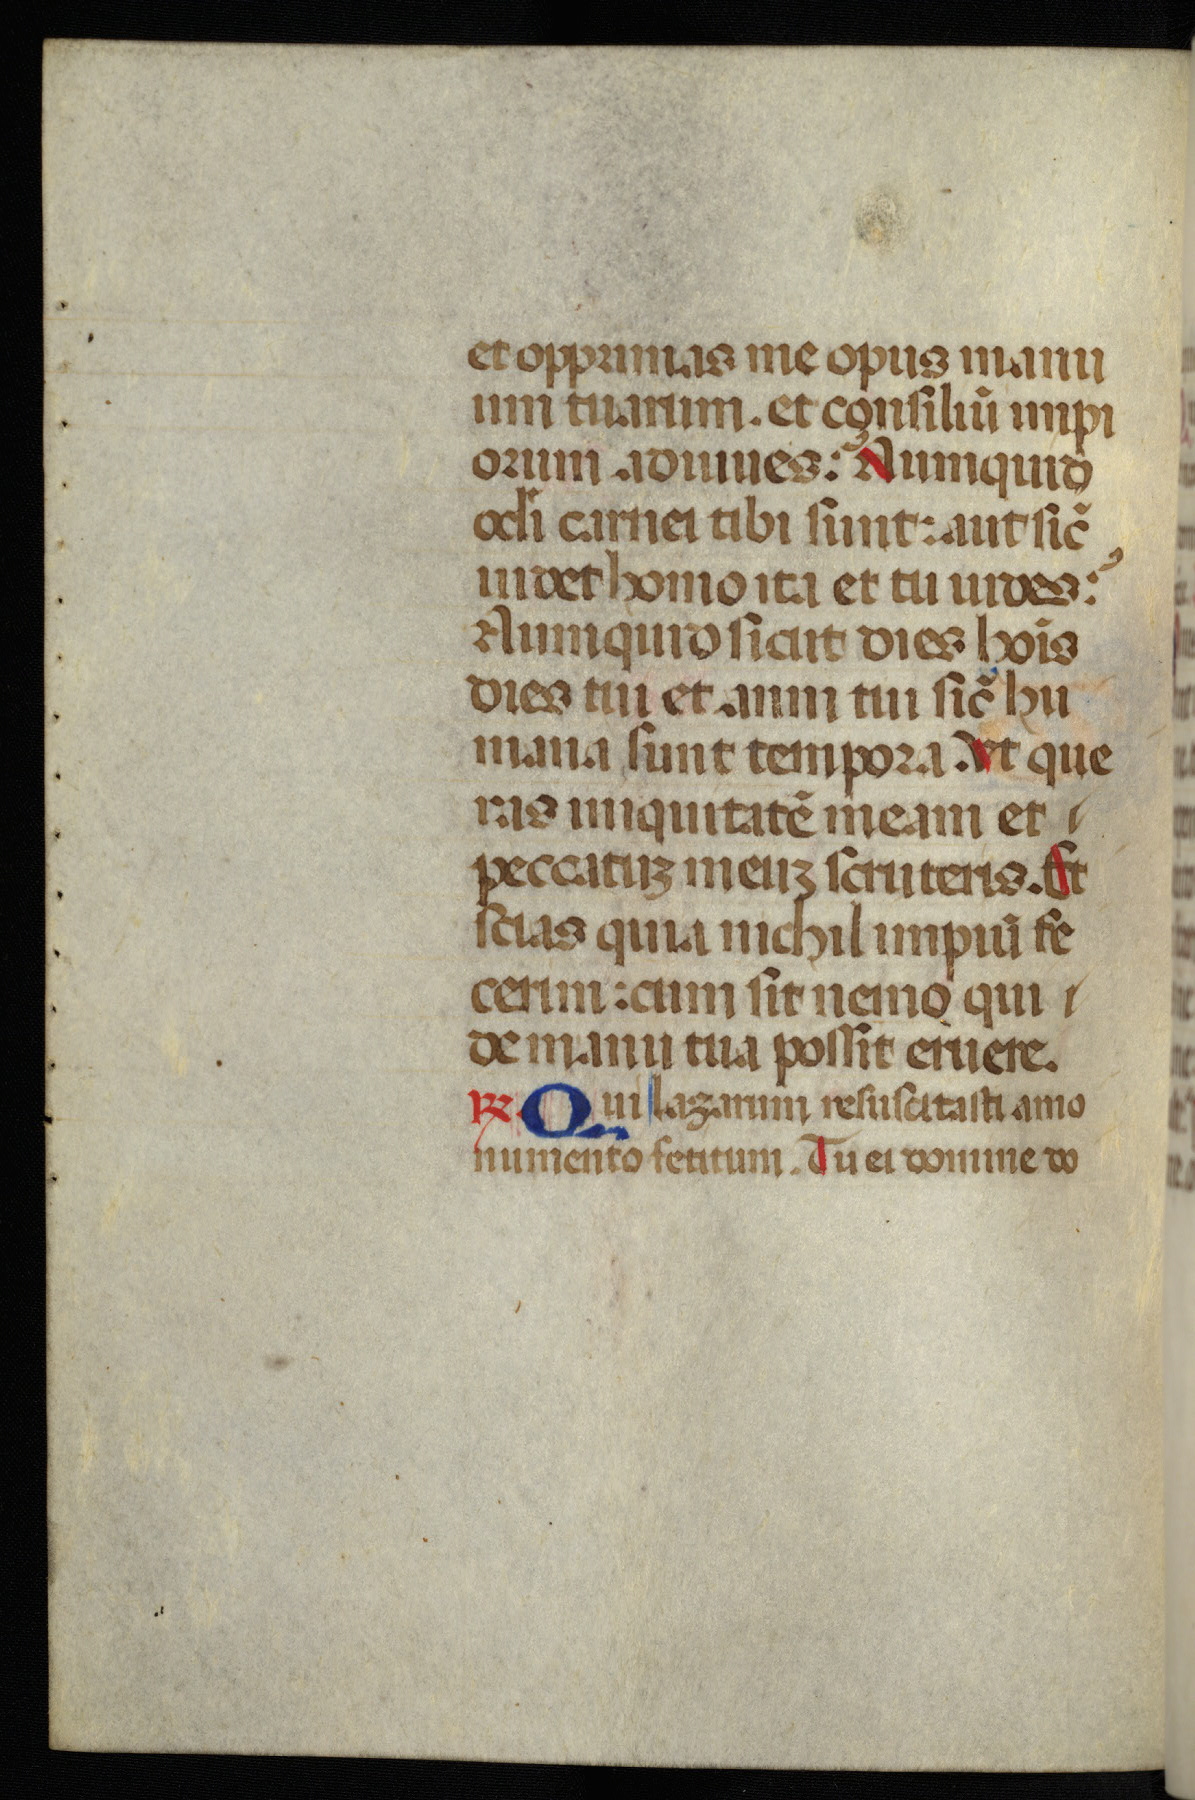 et opprimas me opus manu
um tuarum. et consiliū impi
orum adiuues: Numquid
oculi carnei tibi sunt: aut sic̄
uidet homo ita et tu uides:
Numquid sicut dies hoīs
dies tui et anni tui sic̄ hu
mana sunt tempora Vt que
ras iniquitatē meam et
peccatuꝫ meuꝫ scruteris. Et
scias quia nichil impiū fe
cerim: cum sit nemo qui
de manu tua possit eruere.
℞. Qui lazarum resuscitasti amo
numento fetitum. Tu ei domine do